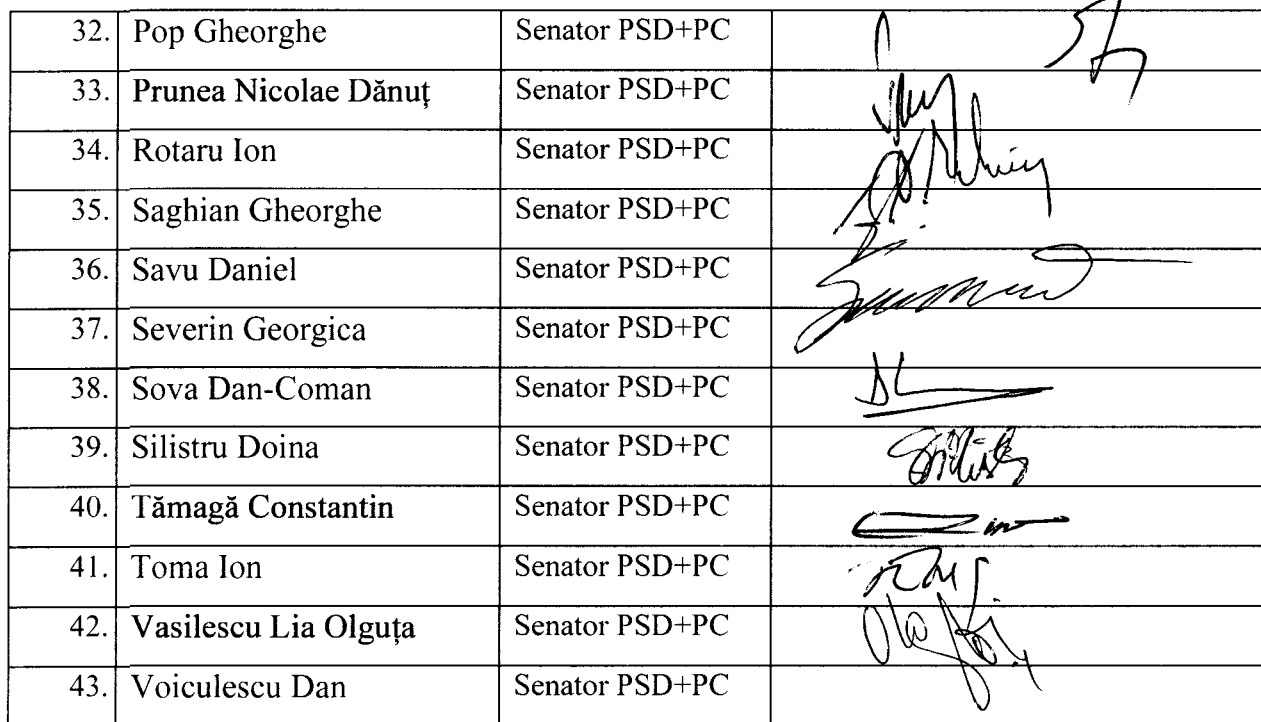 32. Pop Gheorghe Senator PSD+PC
33. Prunea Nicolae Dănuț Senator PSD+PC
34. Rotaru Ion Senator PSD+PC
35. Saghian Gheorghe Senator PSD+PC
36. Savu Daniel Senator PSD+PC
37. Severin Georgica Senator PSD+PC
38. Sova Dan-Coman Senator PSD+PC
39. Silistru Doina Senator PSD+PC
40. Tămagă Constantin Senator PSD+PC
41. Toma Ion Senator PSD+PC
42. Vasilescu Lia Olguța Senator PSD+PC
43. Voiculescu Dan Senator PSD+PC